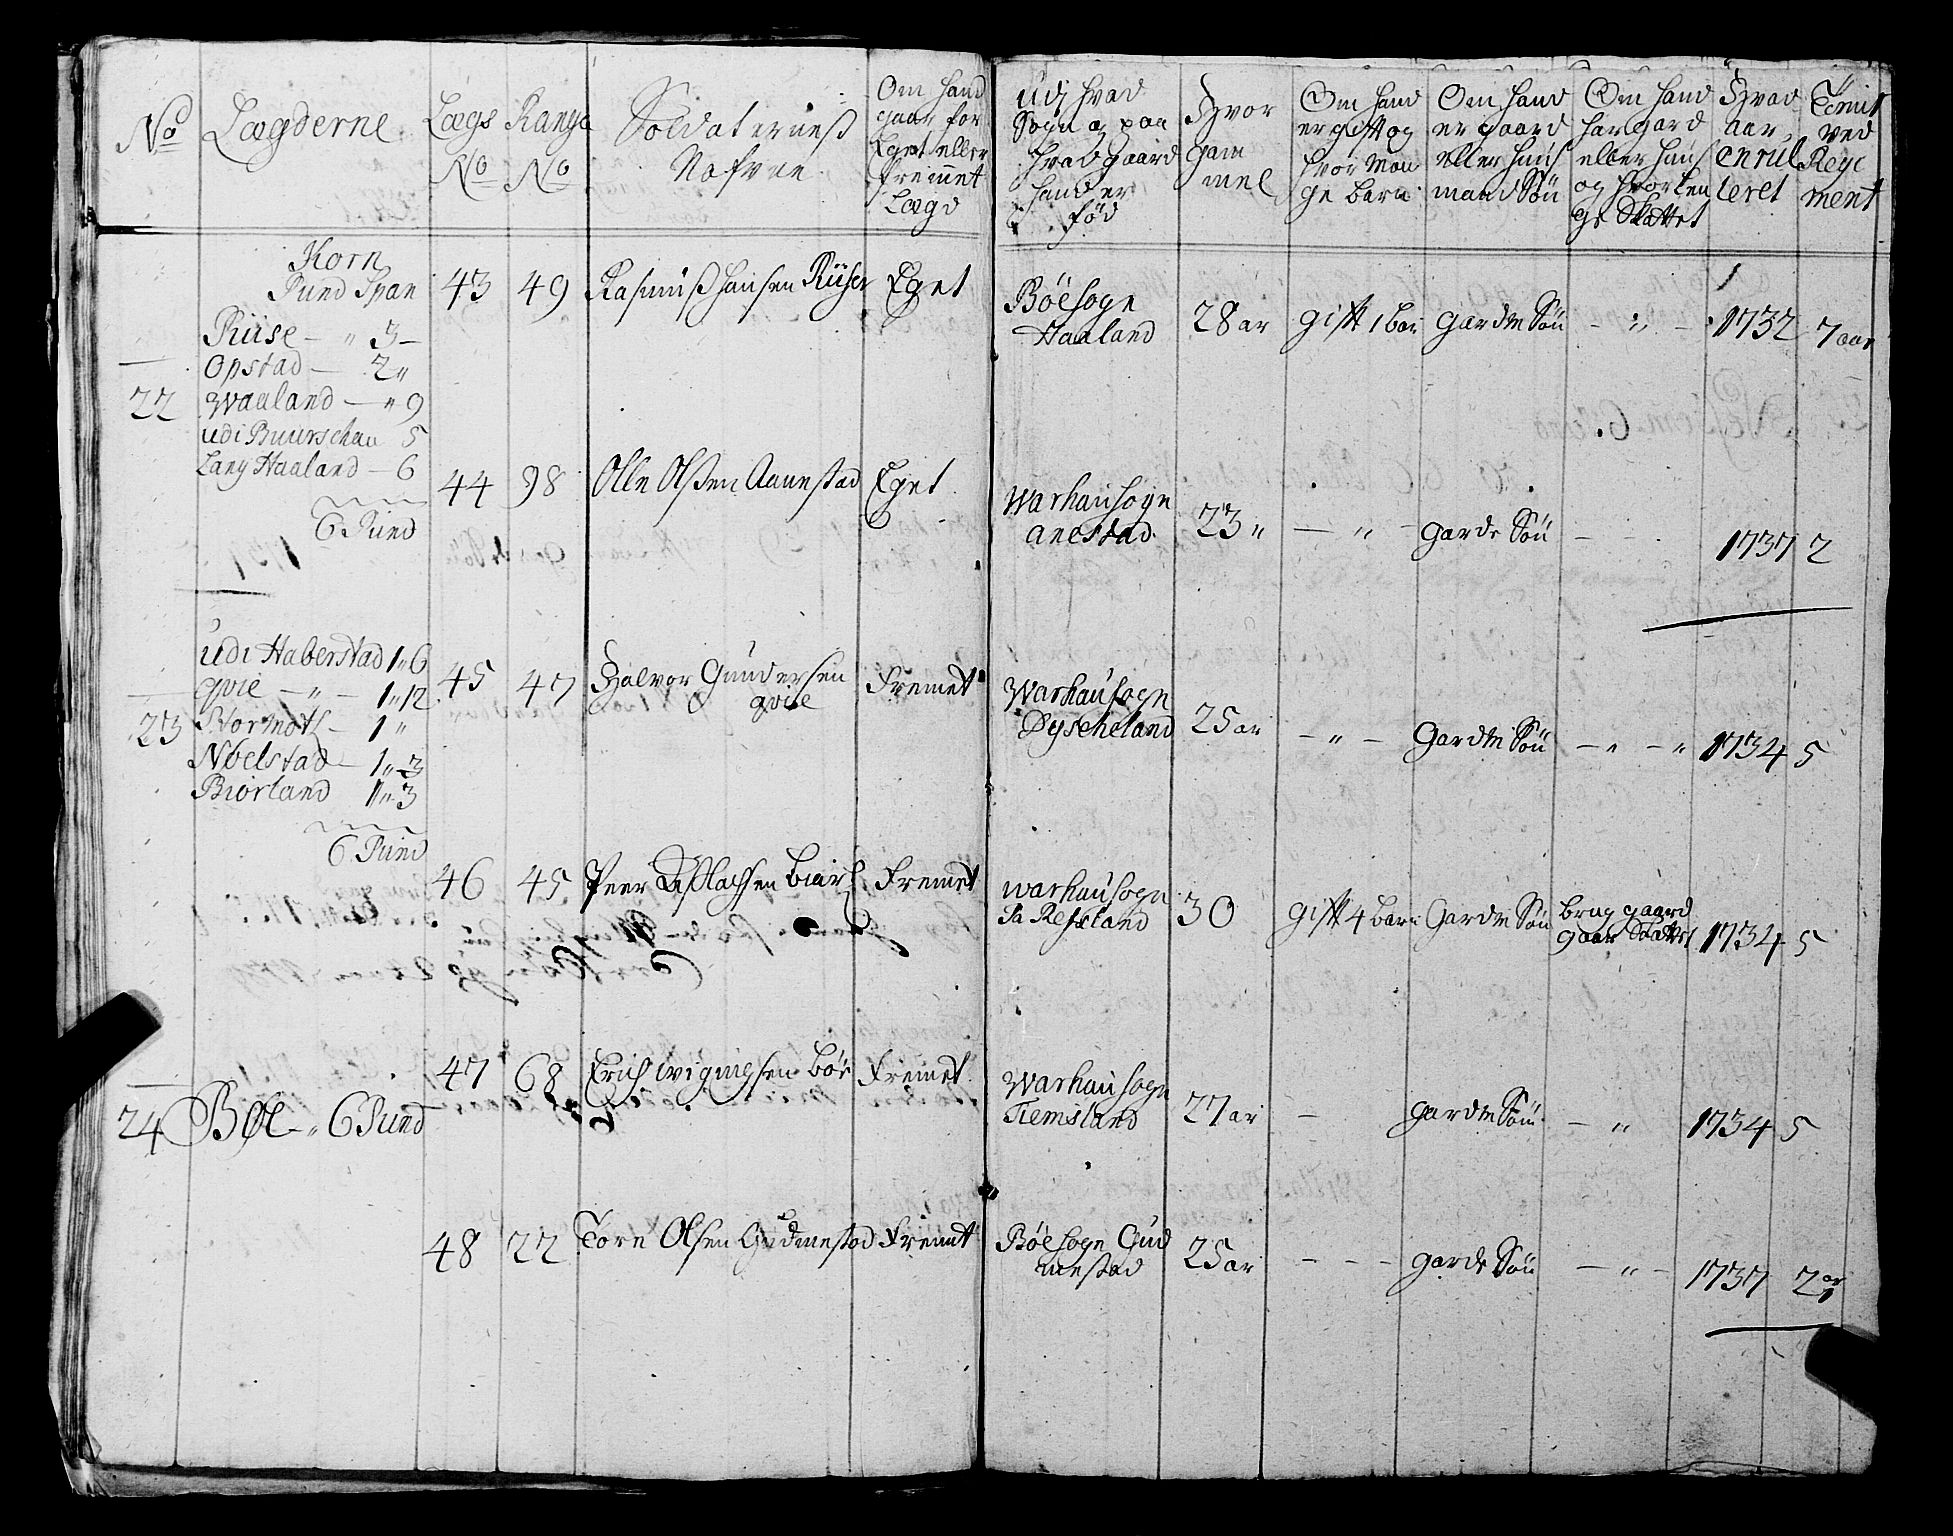 No
Lægderne
Lægs
No
Range
No
Soldaterness
Nafvne
Om hand
gaar for
Eget eller
fremet
Lægd
Udj hvad
Sogn og paa
hvad gaard
hand er
fød
Hvor
gam
mel
Om hand
er gift og
hvor man
ge barn
Om hand
er gaard
eller huus
mand Søn
Om hand
har gard
eller huus
og hvor len
ge Skattet
Hvad
aar
enrul
leret
Tienit
ved
Regi
ment
Korn
Pund Span
Riise - " 3 -
Opstad - 2 "
22 Waaland - " 9
udi Buurschau 5
Lang Haaland - 6
6 Pund
43 49 Rasmus Hansen Riise Eget
Bøe sogn
Haaland
28 ar gift 1 bar garde Søn - " - 1732 7 aar
44 98 Olle Olsen Aanestad Eget
Warhau sogn
anestad
23 " - " - garde Søn - - 1737 2
udi Haberstad 1 " 6
qvie - " - 1 " 12
23 Stormoth - 1 "
Nbelstad - 1 " 3
Biorland 1 " 3
6 Pund
45 47 Halvor Gundersen
qvie
Fremet
Warhau sogn
Dyscheland
25 ar - " - Garde Søn - " - " 1734 5
46 45 Peer Fremet
Warhau sogn
Refsland
30 gift 4 barn Garde Søn
brug gaard
gaar Skattet
1734 5
24 Bøe - " 6 Pund
47 68 Erich bøe Fremet
Warhau sogn
Tiemsland
27 ar - garde Søn - " 1734 5
48 22 Tore Olsen Gudmestad Fremet
Bøe sogn Gud
mestad
25 ar - - - garde Søn - " - 1737 2 ar